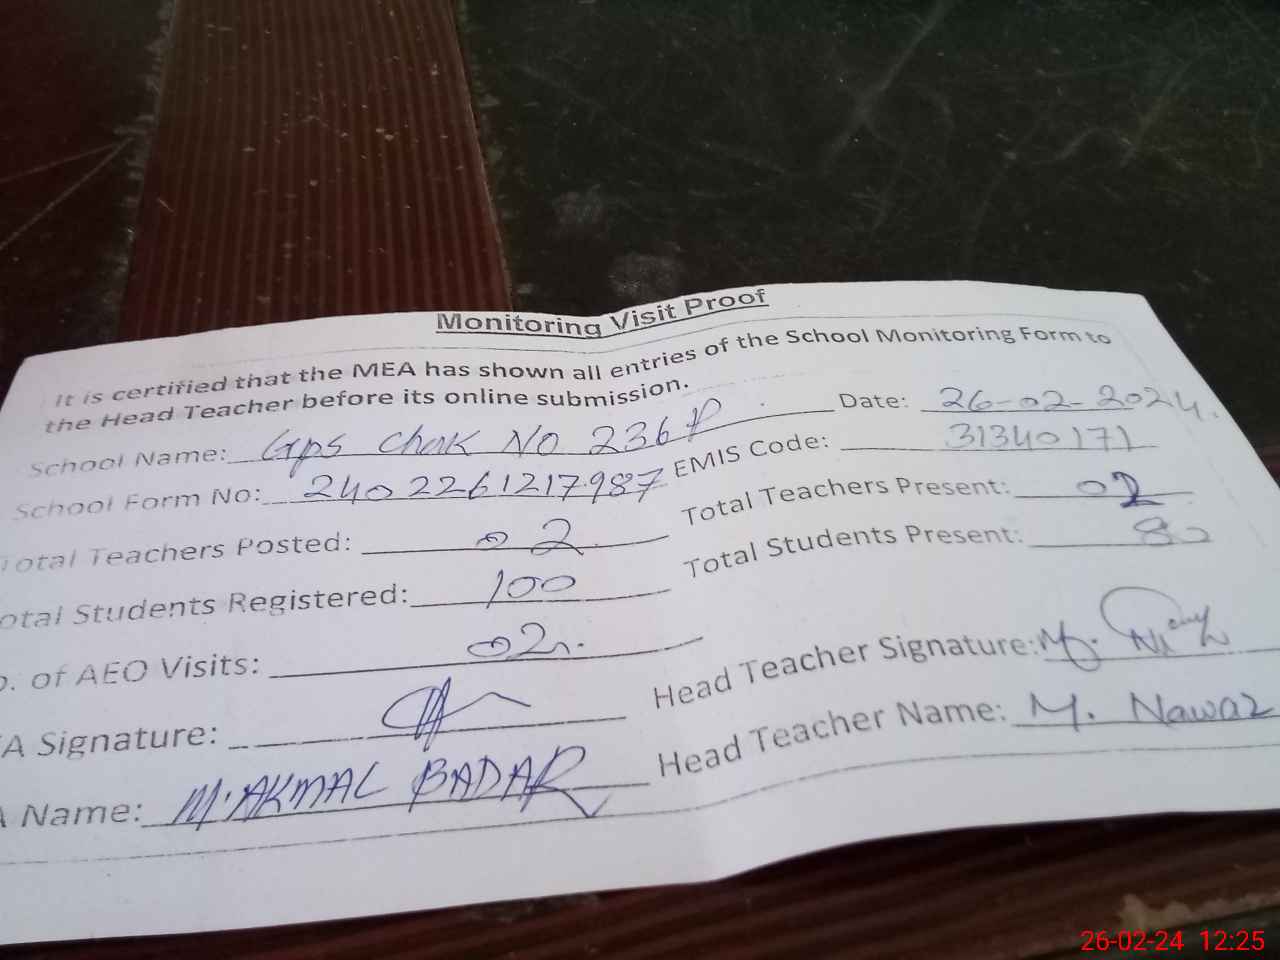 Monitoring Visit Proof
It is certified that the MEA has shown all entries of the School Monitoring Form to
the Head Teacher before its online submission.
School Name: Gps Chak No 236 P Date: 26-02-2024.
School Form No: 2402261217987 EMIS Code: 31340171
Total Teachers Posted: 02 Total Teachers Present: 02
otal Students Registered: 100 Total Students Present: 80
o. of AEO Visits: 02
A Signature: Head Teacher Signature: M.
A Name: M. AKMAL BADAR Head Teacher Name: M. Nawaz
26-02-24 12:25